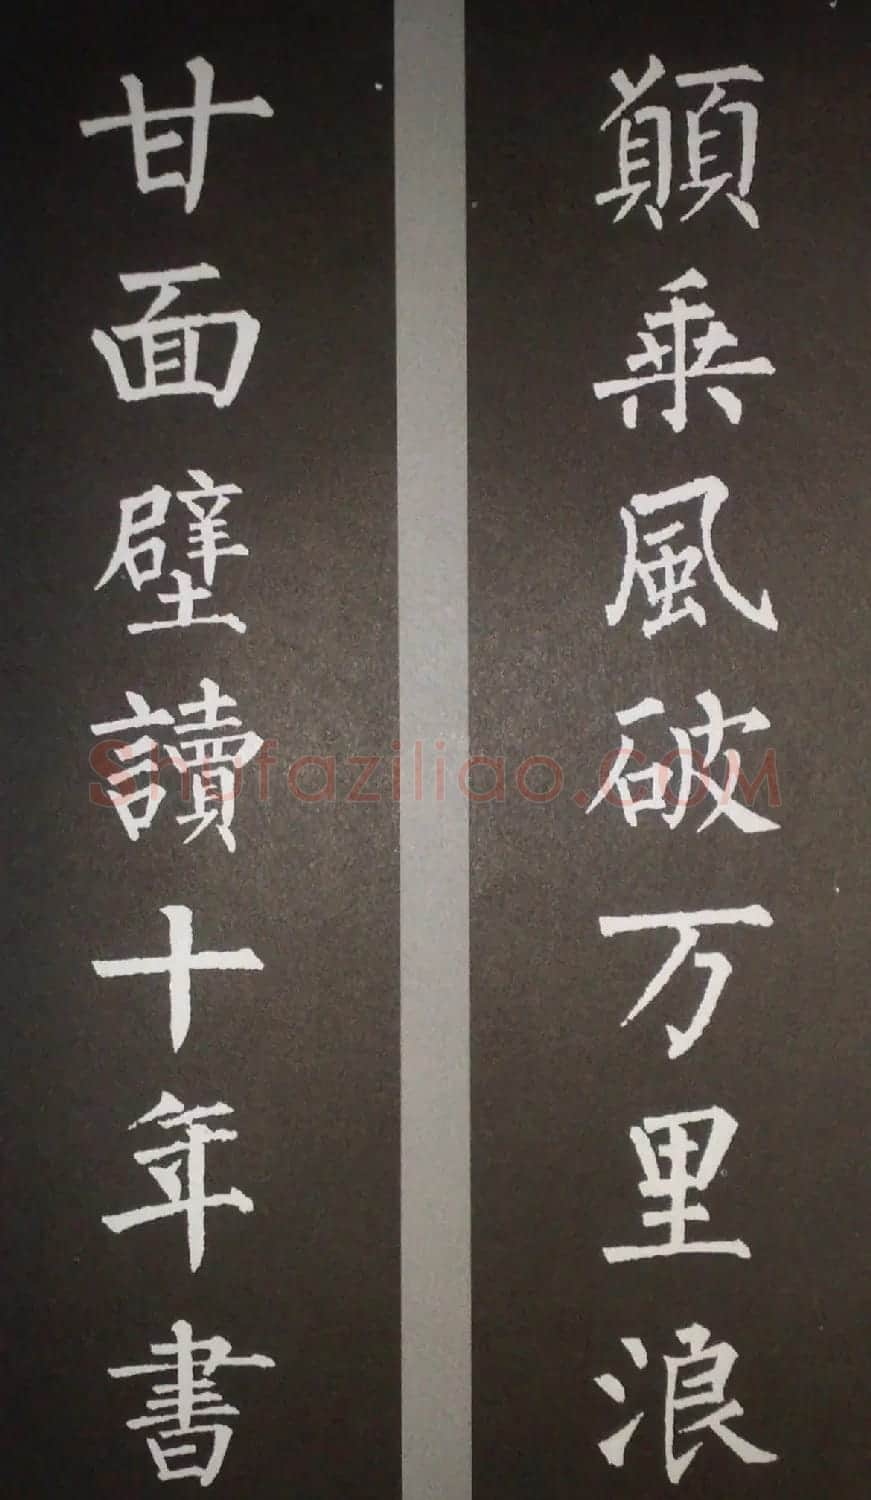 顚乗風破万里浪
甘面壁讀十年書
Shufaziliao.com